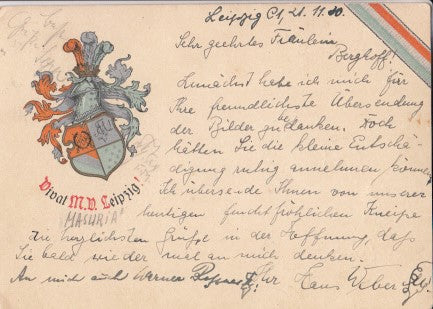 Leipzig C1, 21. 11. 30.
Sehr geehrtes Fräulein
Berghoff!
Zunächst habe ich mich für
Ihre freundlichste Übersendung
der Bilder zu bedanken. Doch
hätten Sie die kleine Entschä-
digung ruhig annehmen können.
Ich übersende Ihnen von unserer
heutigen feuchtfröhlichen Kneipe
die herzlichsten Grüße in der Hoffnung, daß
Sie bald wieder mal an mich denken.
An mich auch Werner Ihr Hans Weber
Vivat M.V. Leipzig!
MASURIA